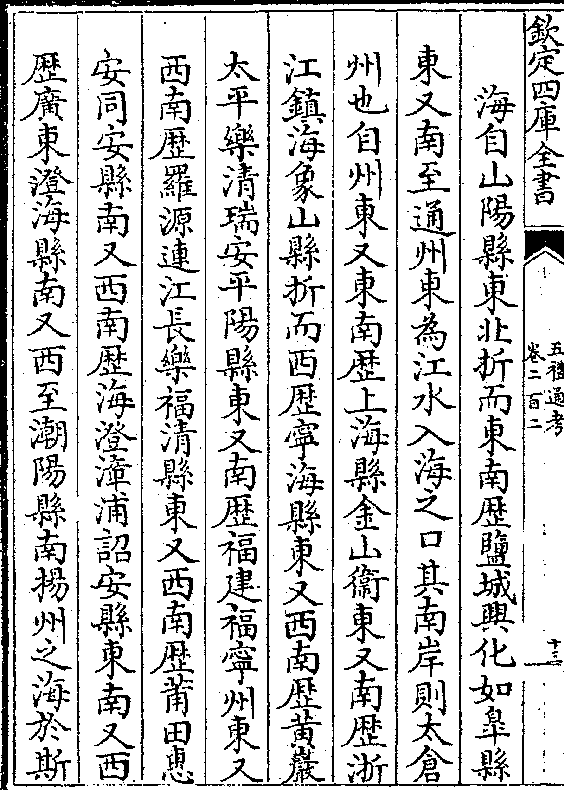 欽定四庫全書
五禮通考
卷二百二
十三
海自山陽縣東北折而東南歴鹽城興化如臯縣
東又南至通州東為江水入海之口其南岸則太倉
州也自州東又東南歴上海縣金山衞東又南歴浙
江鎮海象山縣折而西歴寧海縣東又西南歴黄巖
太平樂清瑞安平陽縣東又南歴福建福寧州東又
西南歴羅源連江長樂福清縣東又西南歴莆田惠
安同安縣南又西南歴海澄漳浦詔安縣東南又西
歴廣東澄海縣南又西至潮陽縣南揚州之海於斯